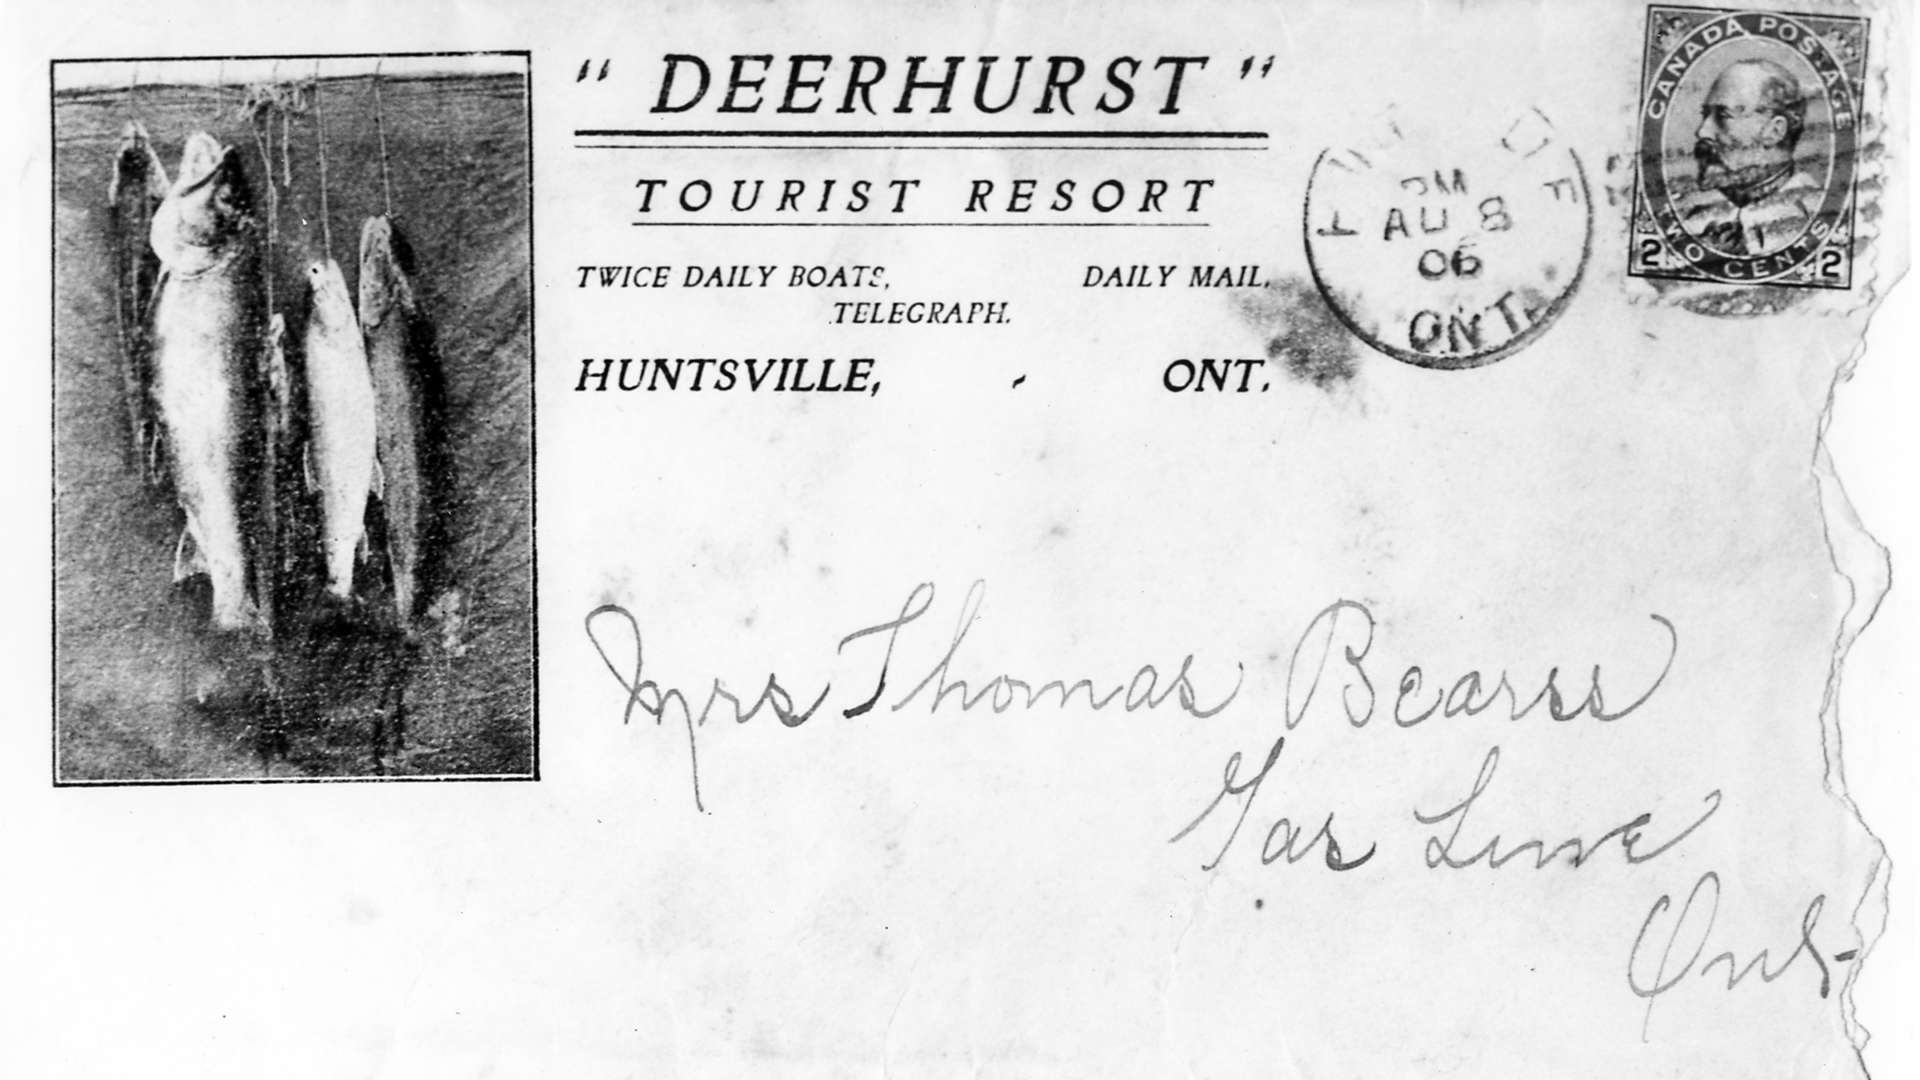 " DEERHURST "
TOURIST RESORT
TWICE DAILY BOATS, DAILY MAIL,
TELEGRAPH.
HUNTSVILLE, - ONT.
CANADA POSTAGE
2 TWO CENTS 2
PM
AU 8
06
ONT.
Mrs Thomas Bearss
Gas Line
Ont-